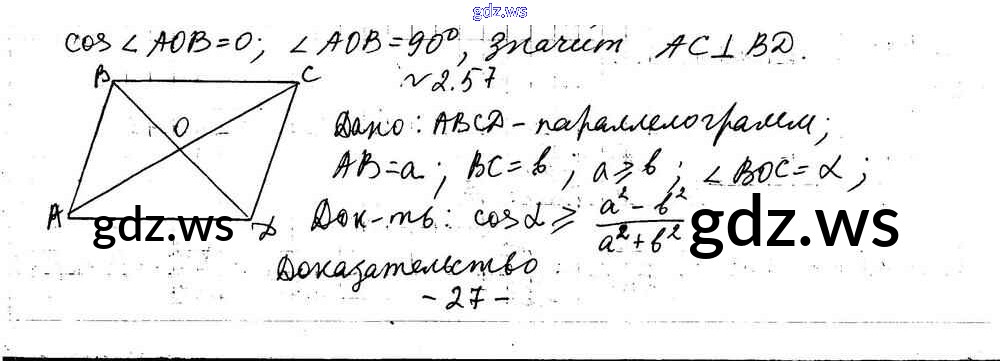 gdz.ws
cos ∠AOB=0; ∠AOB=90°, значит AC⊥BD.
~2.57
B C
O
Дано: ABCD-параллелограмм;
AB=a; BC=b; a⩾b; ∠BOC=α;
A D
Док-ть: cosα ⩾ a²-b² / a²+b²
gdz.ws gdz.ws
Доказательство
-27-